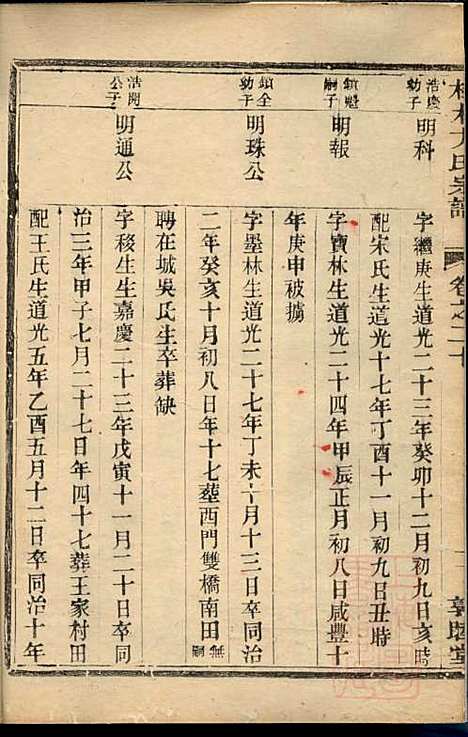 浩慶
幼子
明科
字繼庚生道光二十三年癸卯十二月初九日亥時
配宋氏生道光十七年丁酉十一月初九日丑時
鎮魁
嗣子
明報
字寶林生道光二十四年甲辰正月初八日咸豐十
年庚申被擄
鎮全
幼子
明珠公
字墨林生道光二十七年丁未十月十三日卒同治
二年癸亥十月初八日年十七塟西門雙橋南田無嗣
聘在城吳氏生卒葬缺
浩開
公子
明通公
字移生生嘉慶二十三年戊寅十一月二十日卒同
治三年甲子七月二十七日年四十七葬王家村田
配王氏生道光五年乙酉五月十二日卒同治十年
氏宗譜
卷之二十
敦睦堂